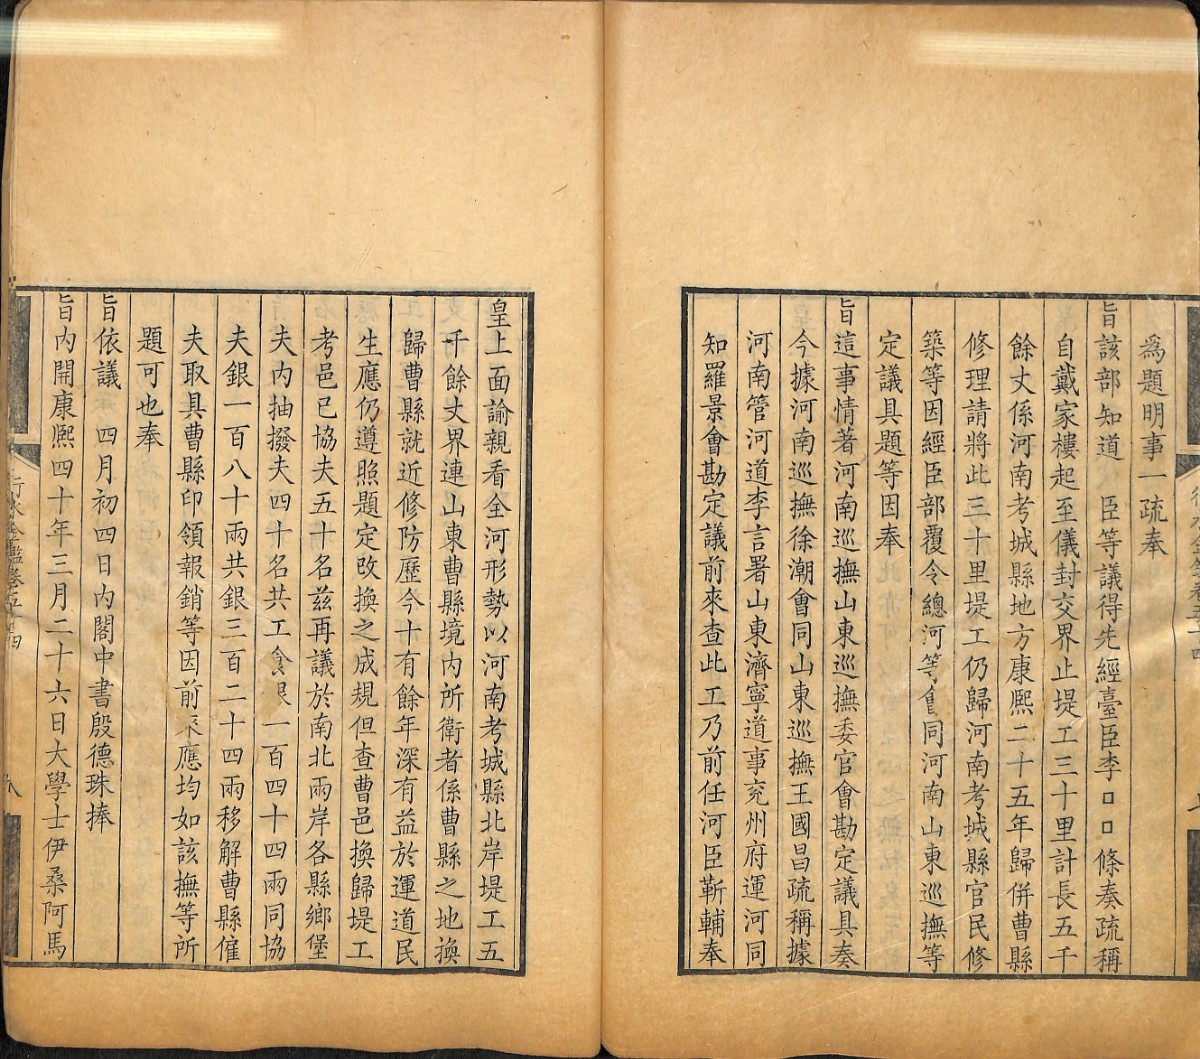 爲題明事一疏奉
旨該部知道　臣等議得先經臺臣李□□條奏疏稱
自戴家樓起至儀封交界止堤工三十里計長五千
餘丈係河南考城縣地方康熙二十五年歸併曹縣
修理請將此三十里堤工仍歸河南考城縣官民修
築等因經臣部覆令總河等會同河南山東巡撫等
定議具題等因奉
旨這事情著河南巡撫山東巡撫委官會勘定議具奏
今據河南巡撫徐潮會同山東巡撫王國昌疏稱據
河南管河道李言署山東濟寧道事兗州府運河同
知羅景會勘定議前來查此工乃前任河臣靳輔奉
皇上面諭親看全河形勢以河南考城縣北岸堤工五
千餘丈界連山東曹縣境內所衛者係曹縣之地換
歸曹縣就近修防歷今十有餘年深有益於運道民
生應仍遵照題定改換之成規但查曹邑換歸堤工
考邑已協夫五十名茲再議於南北兩岸各縣鄉堡
夫內抽撥夫四十名共工食銀一百四十四兩同協
夫銀一百八十兩共銀三百二十四兩移解曹縣僱
夫取具曹縣印領報銷等因前來應均如該撫等所
題可也奉
旨依議　四月初四日內閣中書殷德珠捧
旨內開康熙四十年三月二十六日大學士伊桑阿馬
行水金鑑卷五十四